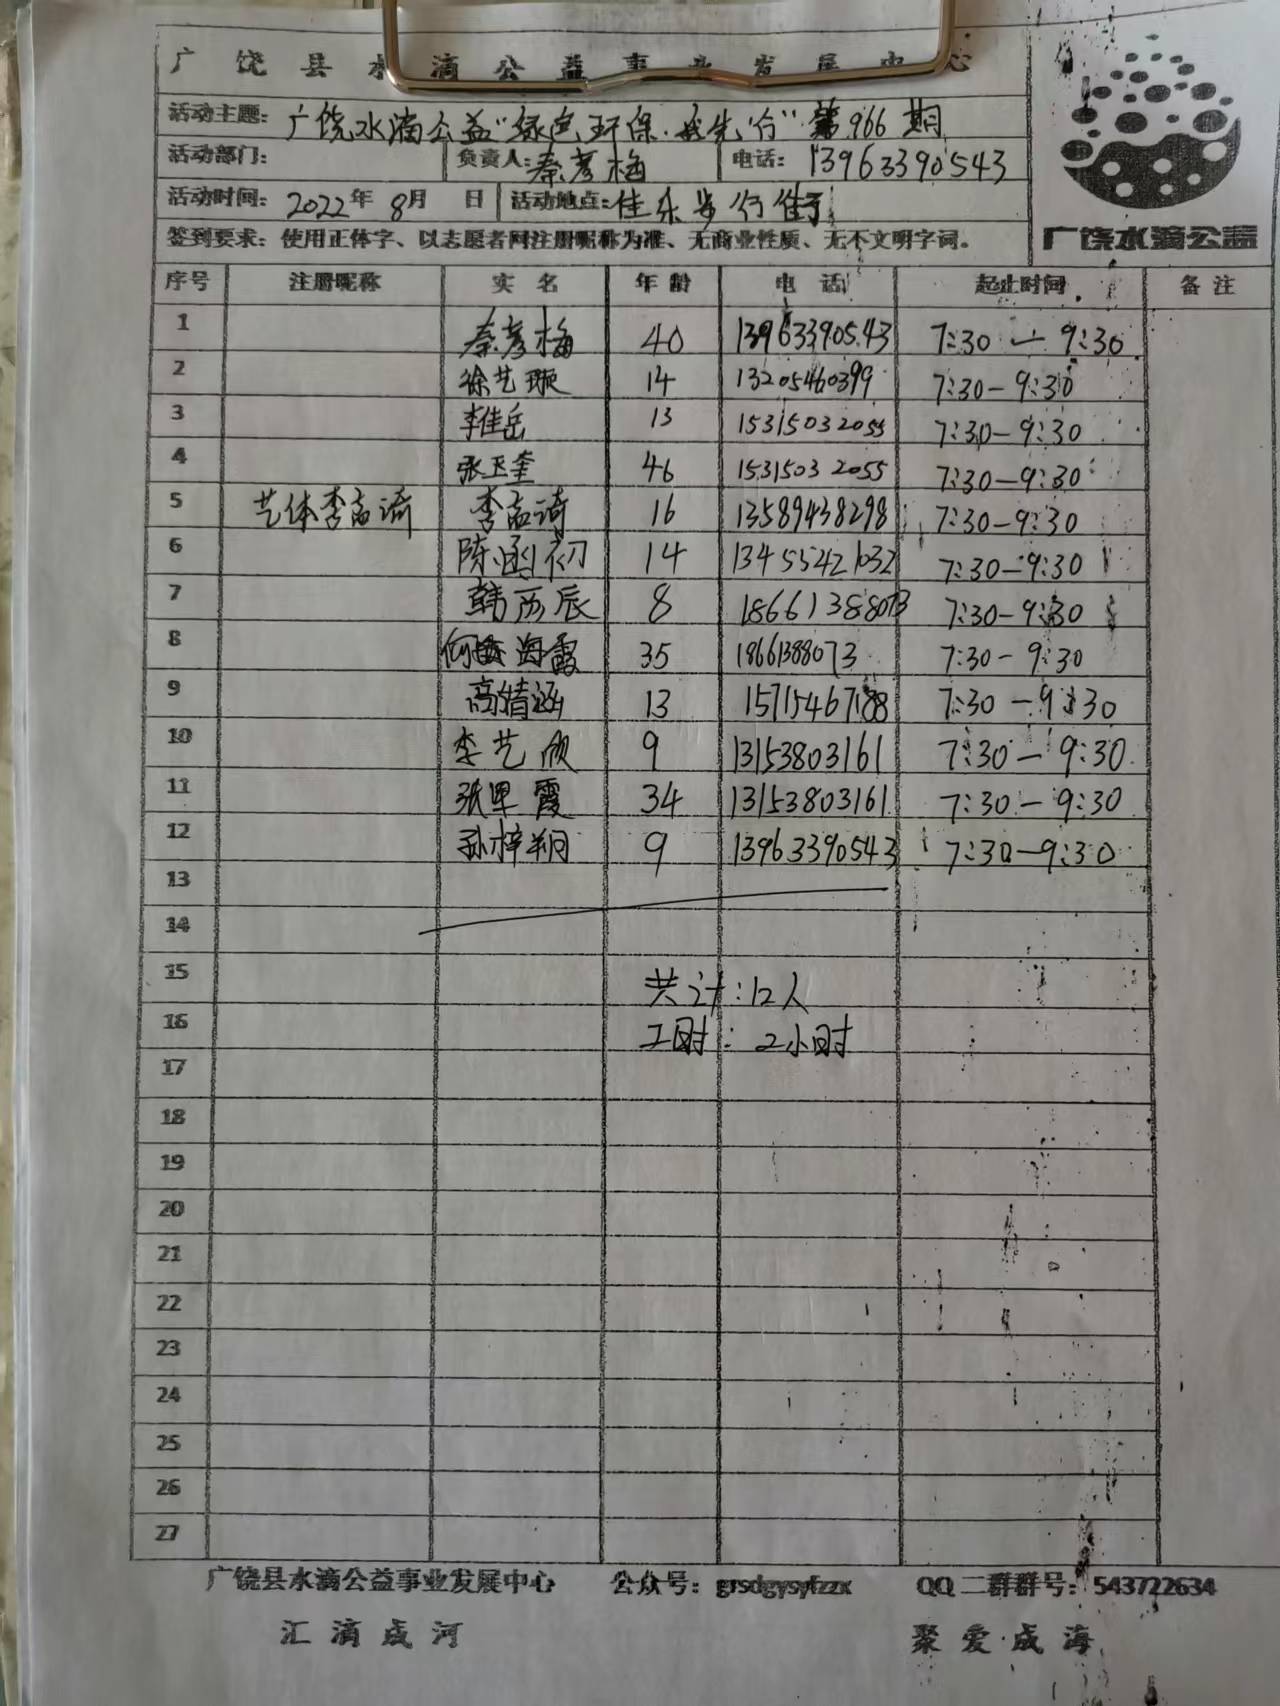 广饶县水滴公益事业发展中心
活动主题：广饶水滴公益“绿色环保·我先行”第966期
活动部门： 负责人：秦彦梅 电话：13963390543
活动时间：2022年8月 日 活动地点：佳乐步行街
签到要求：使用正体字、以志愿者网注册昵称为准、无商业性质、无不文明字词。
广饶水滴公益
序号 注册昵称 实名 年龄 电话 起止时间 备注
1 秦彦梅 40 13963390543 7:30—9:30
2 徐艺璇 14 13205460399 7:30-9:30
3 李佳岳 13 15315032055 7:30-9:30
4 张玉奎 46 15315032055 7:30-9:30
5 艺体李孟涛 李孟涛 16 13589438298 7:30-9:30
6 陈函初 14 13455421032 7:30-9:30
7 韩丙辰 8 18661388073 7:30-9:30
8 何海霞 35 1866388073 7:30-9:30
9 高婧涵 13 15715467188 7:30-9:30
10 李艺欣 9 13153803161 7:30-9:30
11 张翠霞 34 13153803161 7:30-9:30
12 孙梓翔 9 13963390543 7:30-9:30
13
14
15
共计：12人
16
工时：2小时
17
18
19
20
21
22
23
24
25
26
27
广饶县水滴公益事业发展中心 公众号：grsdgysyfzzx QQ二群群号：543722634
汇滴成河 聚爱成海